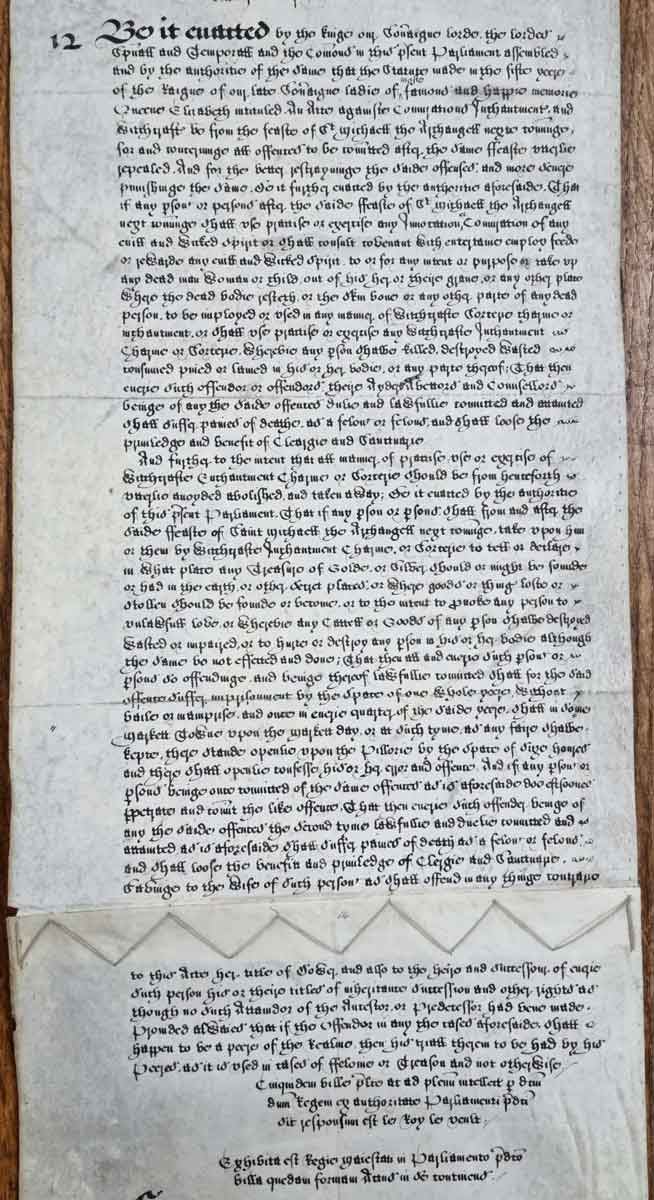 12 Be it enacted by the kinge our Sovaigne lorde, the lordes
Spuall and Temporall and the Comons in this psent Parliament assembled
and by the authoritie of the same that the Statute made in the fifte yeere
of the Raigne of our late Sovaigne ladie of famous and happie memorie
Queene Elizabeth intituled An Acte againste Coniurations Inchantment, and
Witchcraft be from the feaste of St Michaell the Archangell nexte cominge,
for and concerninge all offences to be comitted after, the same ffeaste utterlie
repealed. And for the better restrayninge the saide offenses, and more severe
punishinge the same, be it further enacted by the authoritie aforesaide. That
if any pson or persons after, the saide ffeaste of St Michaell the Archangell
next cominge shall use practise or exercise any Invocation Coniuration of any
evill and wicked spirit or shall consult covenant with entertaine employ feede
or rewarde any evill and wicked Spirit, to or for any intent or purpose or take up
any dead man Woman or child, out of his her or theire grave, or any other place
where the dead bodie resteth, or the skin bone or any other, parte of any dead
person, to be imployed or used in any manner, of Witchcrafte Sorcerie charme or
inchantment, or shall use practise or exercise any Witchcrafte Inchantment
Charme or Sorcerie, Wherebie any pson shalbe killed, destroyed wasted
consumed pined or lamed in his or her bodie, or any parte therof; That then
everie such offendor or offendors theire Ayders Abettors and Counsellors
beinge of any the saide offences dulie and lawfullie convicted and attainted
shall suffer, paines of deathe, as a felon or felons, and shall loose the
priviledge and benefit of Cleargie and Sanctuarie
And further to the intent that all manner, of practise use or exercise of
Witchcrafte Enchantment Charme or Sorcerie should be from henceforth
utterlie avoyded abolished, and taken away; Be it enacted by the authoritie
of this psent Parliament, That if any pson or psons shall from and after the
saide ffeaste of Saint Michaell the Archangell next cominge, take upon him
or them by Witchcrafte Inchantment Charme, or Sorcerie to tell or declare
in what place any treasure of Golde, or Silver should or might be founde
or had in the earth, or other, secret places, or where goods or things loste or
stollen should be founde or become, or to the intent to pvoke any person to
unlawfull love, or wherebie any Cattell or Goods of any pson shalbe destroyed
wasted or impaired, or to hurte or destroy any pson in his or her bodie although
the same be not effected and done; That then all and everie such pson or
psons so offendinge, and beinge thereof lawfullie convicted shall for the said
offence suffer, imprisonment by the space of one whole yeere, without
baile or mainprise, and once in everie quarter of the saide yeere, shall in some
markett Towne upon the markett day, or at such tyme, as any faire shalbe
kepte, there stande openlie upon the Pillorie by the space of sixe houres
and there shall openlie confesse, his or her error and offence. And if any pson or
psons beinge once convicted of the same offences as is aforesaide doe eftsoones
ppetrate and comit the like offence, That then everie such offender beinge of
any the saide offences the second tyme lawfullie and duelie convicted and
attainted as is aforesaide shall suffer paines of death as a felon or felons,
and shall loose the benefitt and priviledge of Clergie and Sanctuarie,
Savinge to the wife of such person as shall offend in any thinge contrarie
to this Acte her, title of dower, and also to the heire and successour, of everie
such person his or theire titles of inheritance succession and other rights as
though no such Attaindor of the Ancestor, or Predecessor had bene made.
Provided alwaies that if the Offendor in any the cases aforesaide, shall
happen to be a peere of the Realme, then his triall therein to be had by his
Peeres, as it is used in cases of ffelonie or Treason and not otherwise
Cuiquidem bille plce at ad plenu intellect p dcm
dnm Regem ex authoritate Parliamenti pdti
sit responsum est le Roy le veult.
Exhibita est Regie maiestati in Parliamento pdto
billa quedam formam Actus in se continens.